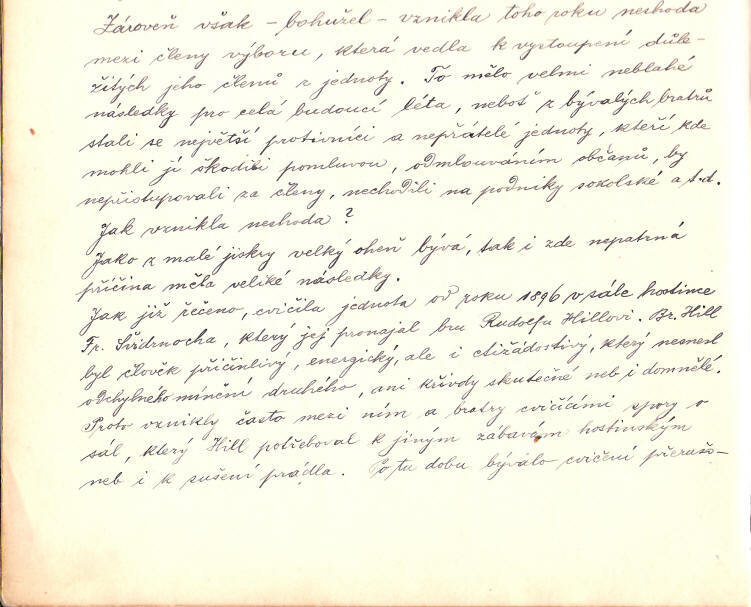 Zároveň však – bohužel – vznikla toho roku neshoda
mezi členy výboru, která vedla k vystoupení důle-
žitých jeho členů z jednoty. To mělo velmi neblahé
následky pro celá budoucí léta, neboť z bývalých bratrů
stali se největší protivníci a nepřátelé jednoty, kteří kde
mohli jí škodili pomluvou, odmlouváním občanů, by
nepřistupovali za členy, nechodili na podniky sokolské a t.d.
Jak vznikla neshoda?
Jako z malé jiskry velký oheň bývá, tak i zde nepatrná
příčina měla veliké následky.
Jak již řečeno, cvičila jednota od roku 1896 v sále hostince
Fr. , který jej pronajal bru Rudolfu Hillovi. Br. Hill
byl člověk přičinlivý, energický, ale i ctižádostivý, který nesnesl
odchylného mínění druhého, ani křivdy skutečné neb i domnělé.
Proto vznikly často mezi ním a bratry cvičícími spory o
sál, který Hill potřeboval k jiným zábavám hostinským
neb i k sušení prádla. Po tu dobu bývalo cvičení přeruše-